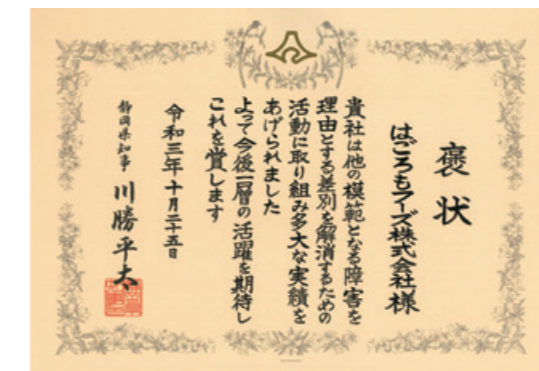 褒状
はごろもフーズ株式会社様
貴社は他の模範となる障害を
理由とする差別を解消するための
活動に取り組み多大な実績を
あげられました
よって今後一層の活躍を期待し
これを賞します
令和三年十月二十五日
静岡県知事 川勝平太